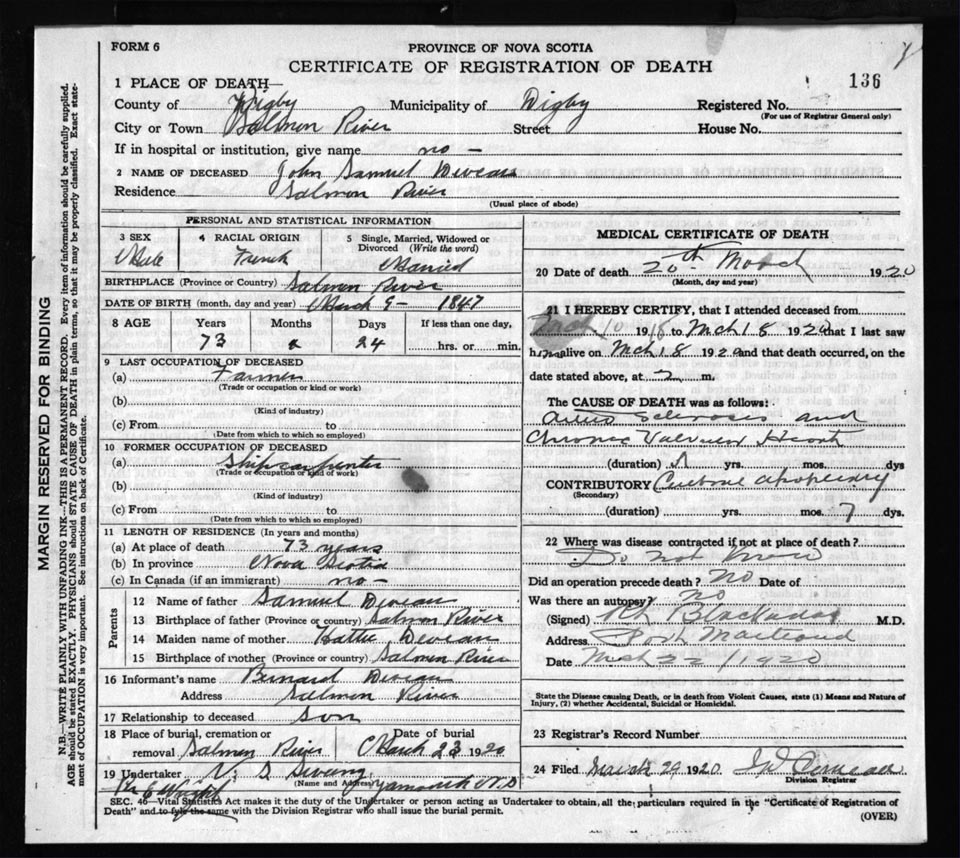 FORM 6
PROVINCE OF NOVA SCOTIA
CERTIFICATE OF REGISTRATION OF DEATH
136
1 PLACE OF DEATH—
County of Digby Municipality of Digby Registered No.
(For use of Registrar General only)
City or Town Salmon River Street House No.
If in hospital or institution, give name no -
2 NAME OF DECEASED John Samuel Deveau
Residence Salmon River
(Usual place of abode)
PERSONAL AND STATISTICAL INFORMATION
3 SEX 4 RACIAL ORIGIN 5 Single, Married, Widowed or
Divorced (Write the word)
Male French Married
BIRTHPLACE (Province or Country) Salmon River
DATE OF BIRTH (month, day and year) March 9- 1847
8 AGE Years Months Days If less than one day,
73 24 hrs. or min.
9 LAST OCCUPATION OF DECEASED
(a) Farmer
(Trade or occupation or kind or work)
(b)
(Kind of industry)
(c) From to
(Date from which to which so employed)
10 FORMER OCCUPATION OF DECEASED
(a) Ship carpenter
(Trade or occupation or kind of work)
(b)
(Kind of industry)
(c) From to
(Date from which to which so employed)
11 LENGTH OF RESIDENCE (In years and months)
(a) At place of death 73 years
(b) In province Nova Scotia
(c) In Canada (if an immigrant) no -
Parents
12 Name of father Samuel Deveau
13 Birthplace of father (Province or country) Salmon River
14 Maiden name of mother Hattie Deveau
15 Birthplace of mother (Province or country) Salmon River
16 Informant's name Bernard Deveau
Address Salmon River
17 Relationship to deceased son
18 Place of burial, cremation or Date of burial
removal Salmon River March 23 1920
19 Undertaker V. S. Sweeny
(Name and Address) Yarmouth N.S
Wright
MEDICAL CERTIFICATE OF DEATH
20 Date of death 20th March 1920
(Month, day and year)
21 I HEREBY CERTIFY, that I attended deceased from
Mch 10 1918 to Mch 18 1920 that I last saw
him alive on Mch 18 1920 and that death occurred, on the
date stated above, at 2 m.
The CAUSE OF DEATH was as follows:
Arterio Sclerosis and
Chronic Valvular Heart
(duration) yrs. mos. dys
CONTRIBUTORY Cerebral apoplexy
(Secondary)
(duration) yrs. mos. 7 dys.
22 Where was disease contracted if not at place of death?
Do not know
Did an operation precede death? No Date of
Was there an autopsy? no
(Signed) Blackadar M.D.
Address Port Maitland
Date Mch 22 / 1920
State the Disease causing Death, or in death from Violent Causes, state (1) Means and Nature of
Injury, (2) whether Accidental, Suicidal or Homicidal.
23 Registrar's Record Number
24 Filed March 29 1920 Comeau
Division Registrar
SEC. 46—Vital Statistics Act makes it the duty of the Undertaker or person acting as Undertaker to obtain, all the particulars required in the "Certificate of Registration of
Death" and to file the same with the Division Registrar who shall issue the burial permit.
(OVER)
MARGIN RESERVED FOR BINDING
N.B.—WRITE PLAINLY WITH UNFADING INK—THIS IS A PERMANENT RECORD. Every item of information should be carefully supplied.
AGE should be stated EXACTLY. PHYSICIANS should STATE CAUSE OF DEATH in plain terms, so that it may be properly classified. Exact state-
ment of OCCUPATION is very important. See instructions on back of Certificate.